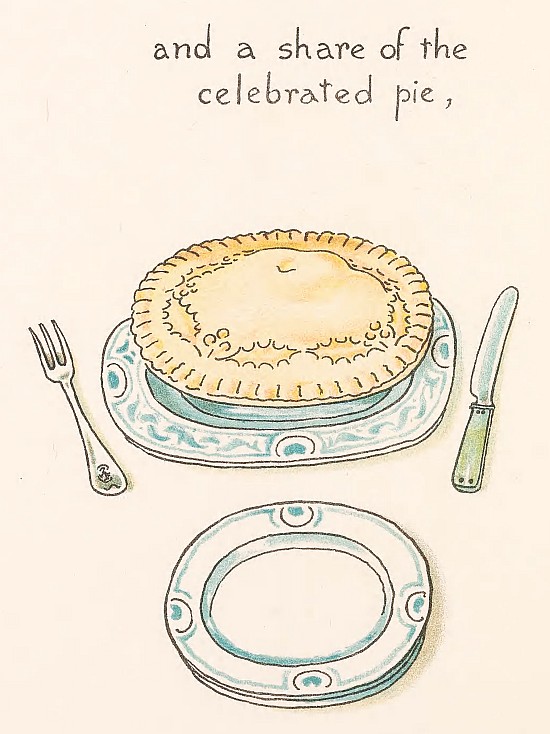 and a share of the
celebrated pie,